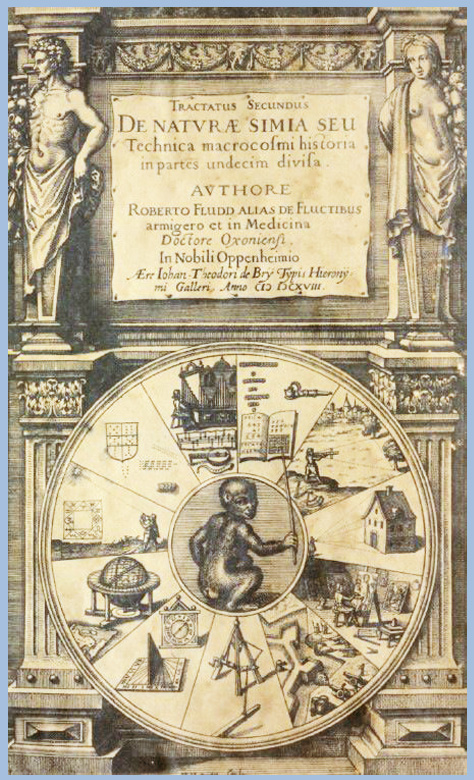 TRACTATUS SECUNDUS
DE NATVRÆ SIMIA SEU
Technica macrocosmi historia
in partes undecim divisa.
AVTHORE
ROBERTO FLUDD ALIAS DE FLUCTIBUS
armigero et in Medicina
Doctore Oxoniensi.
In Nobili Oppenheimio
Ære Iohan-Theodori de Bry Typis Hierony-
mi Galleri. Anno CIↃ IↃCXVIII.